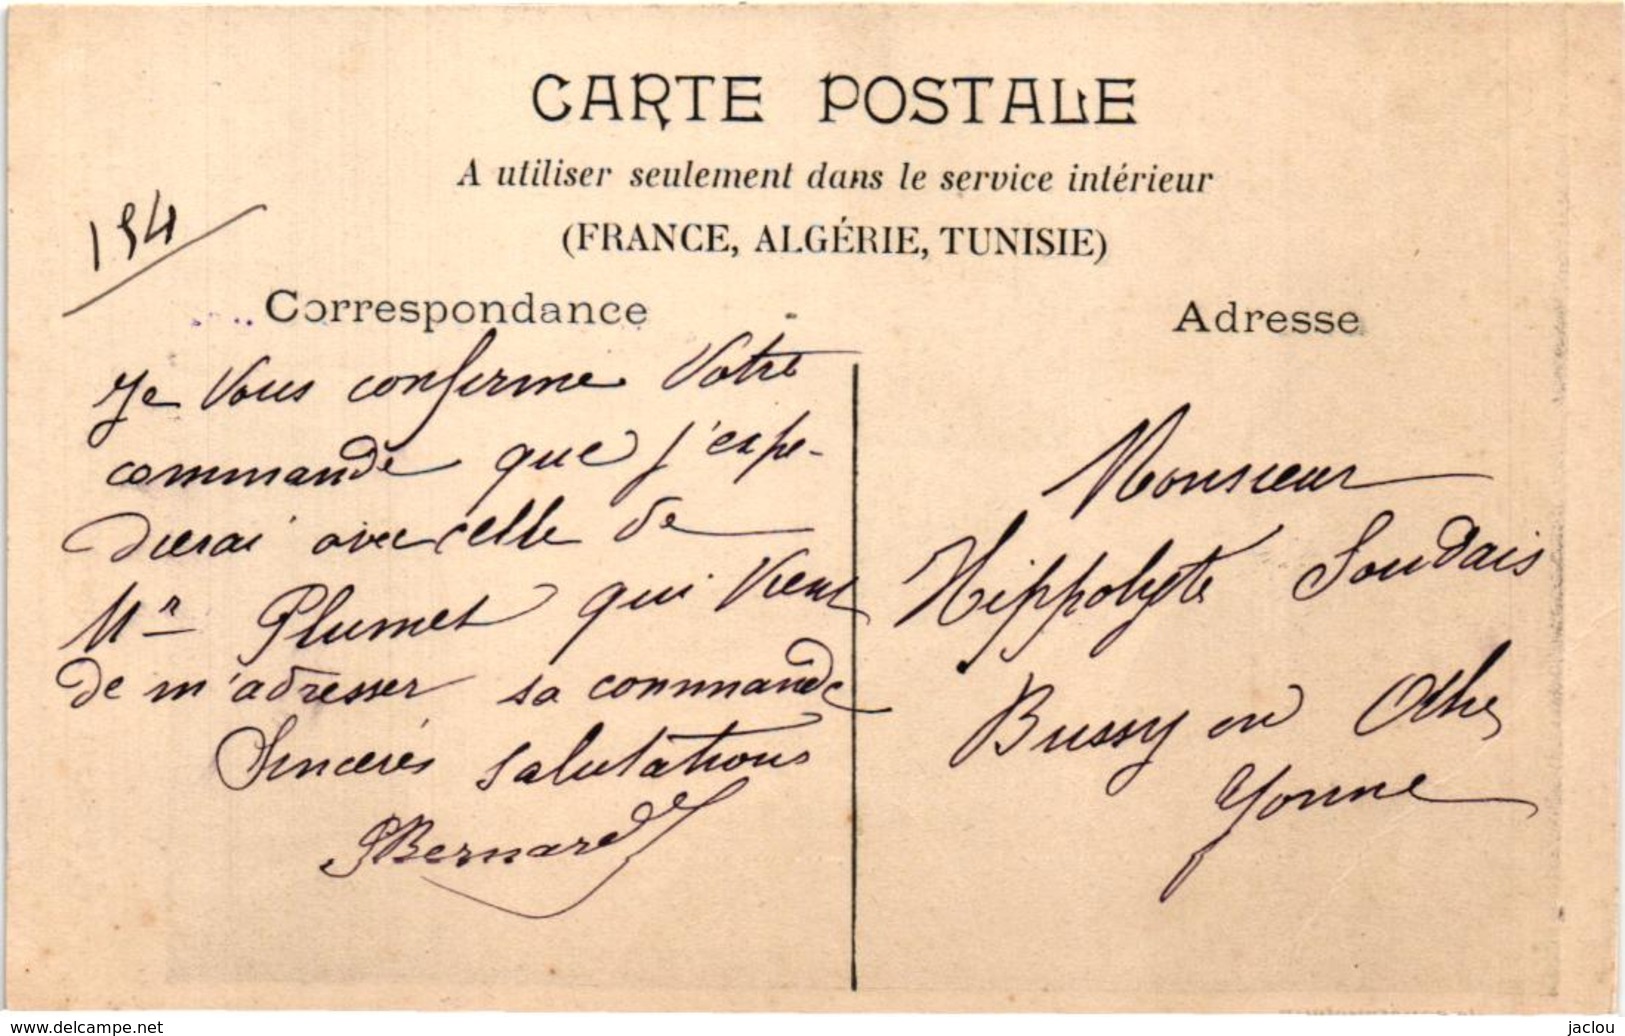 CARTE POSTALE
A utiliser seulement dans le service intérieur
(FRANCE, ALGÉRIE, TUNISIE)
194
Correspondance
Adresse
Je Vous confirme Votre
commande que j'expe-
dierai avec celle de
Mr Plumet qui Vient
de m'adresser sa commande
Sincères Salutations
PBernard
Monsieur
Hippolyte Soudais
Bussy en Othe
Yonne
www.delcampe.net
jaclou